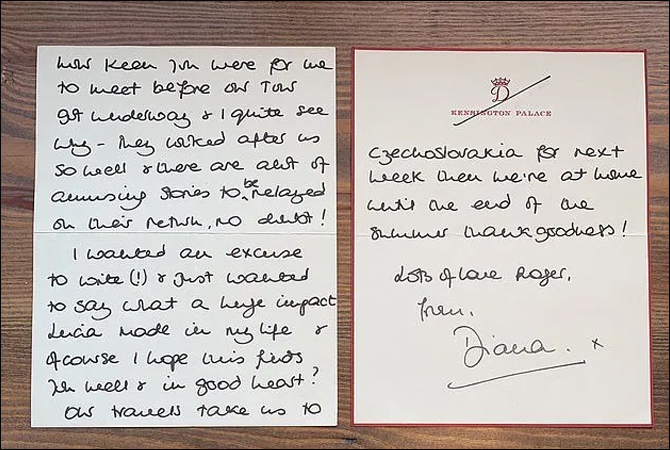 how keen you were for me
to meet before our Tour
got underway & I quite see
why - they looked after us
so well & there are alot of
amusing stories to be relayed
on their return, no doubt!
I wanted an excuse
to write (!) & just wanted
to say what a huge impact
Lucia made in my life &
ofcourse I hope this finds
you well & in good heart?
Our travels take us to
D
KENSINGTON PALACE
Czechoslovakia for next
week then we're at home
until the end of the
summer thank goodness!
Lots of love Roger,
from,
Diana. x